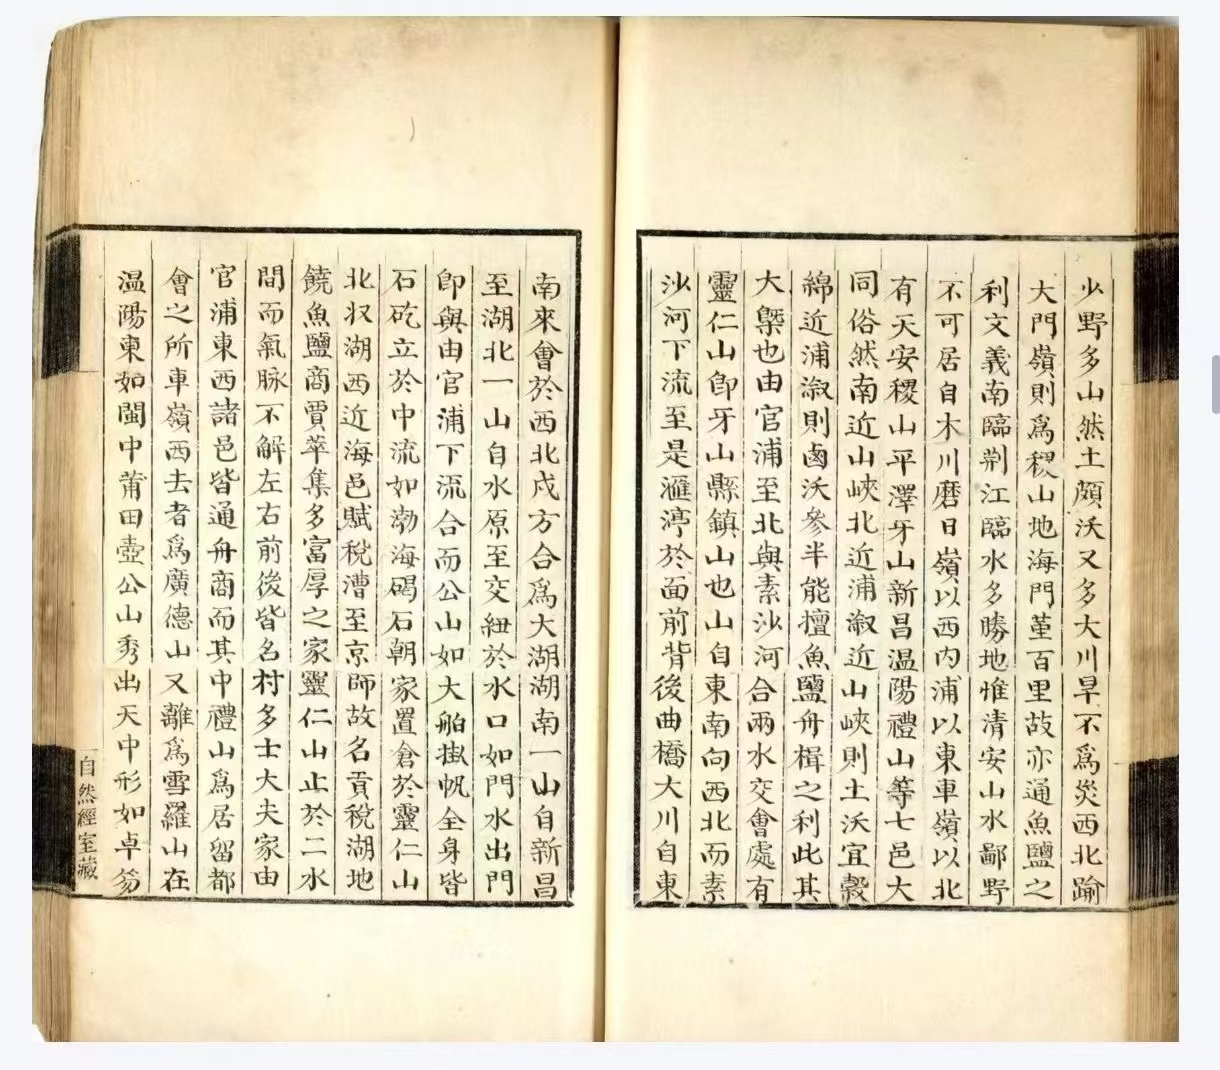 少野多山然土頗沃又多大川旱不為災西北踰
大門嶺則爲稷山地海門堇百里故亦通魚鹽之
利文義南臨荆江臨水多勝地惟清安山水鄙野
不可居自木川磨日嶺以西内浦以東車嶺以北
有天安稷山平澤牙山新昌温陽禮山等七邑大
同俗然南近山峽北近浦溆近山峽則土沃宜穀
綿近浦溆則鹵沃參半能擅魚鹽舟楫之利此其
大槩也由官浦至北與素沙河合兩水交會處有
靈仁山卽牙山縣鎮山也山自東南向西北而素
沙河下流至是滙渟於面前背後曲橋大川自東
南來會於西北戌方合爲大湖湖南一山自新昌
至湖北一山自水原至交紐於水口如門水出門
卽與由官浦下流合而公山如大舶掛帆全身皆
石矻立於中流如渤海碣石朝家置倉於靈仁山
北収湖西近海邑賦稅漕至京師故名貢稅湖地
饒魚鹽商賈萃集多富厚之家靈仁山止於二水
間而氣脉不解左右前後皆名村多士大夫家由
官浦東西諸邑皆通舟商而其中禮山爲居留都
會之所車嶺西去者爲廣德山又離爲雪羅山在
温陽東如閩中莆田壺公山秀出天中形如卓笏
自然經室藏